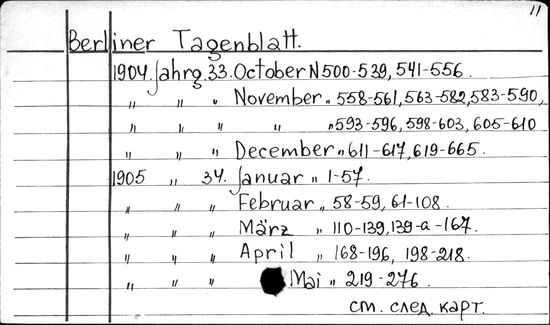 11
Berliner Tagenblatt.
1904. Jahrg. 33. October N 500-539, 541-556.
" " " November " 558-561, 563-582, 583-590,
" " " " " 593-596, 598-603, 605-610
" " " December " 611-617, 619-665.
1905 " 34. Januar " 1-57.
" " " Februar " 58-59, 61-108.
" " " März " 110-139, 139-a-167.
" " " April " 168-196, 198-218.
" " " Mai " 219-276.
см. след. карт.